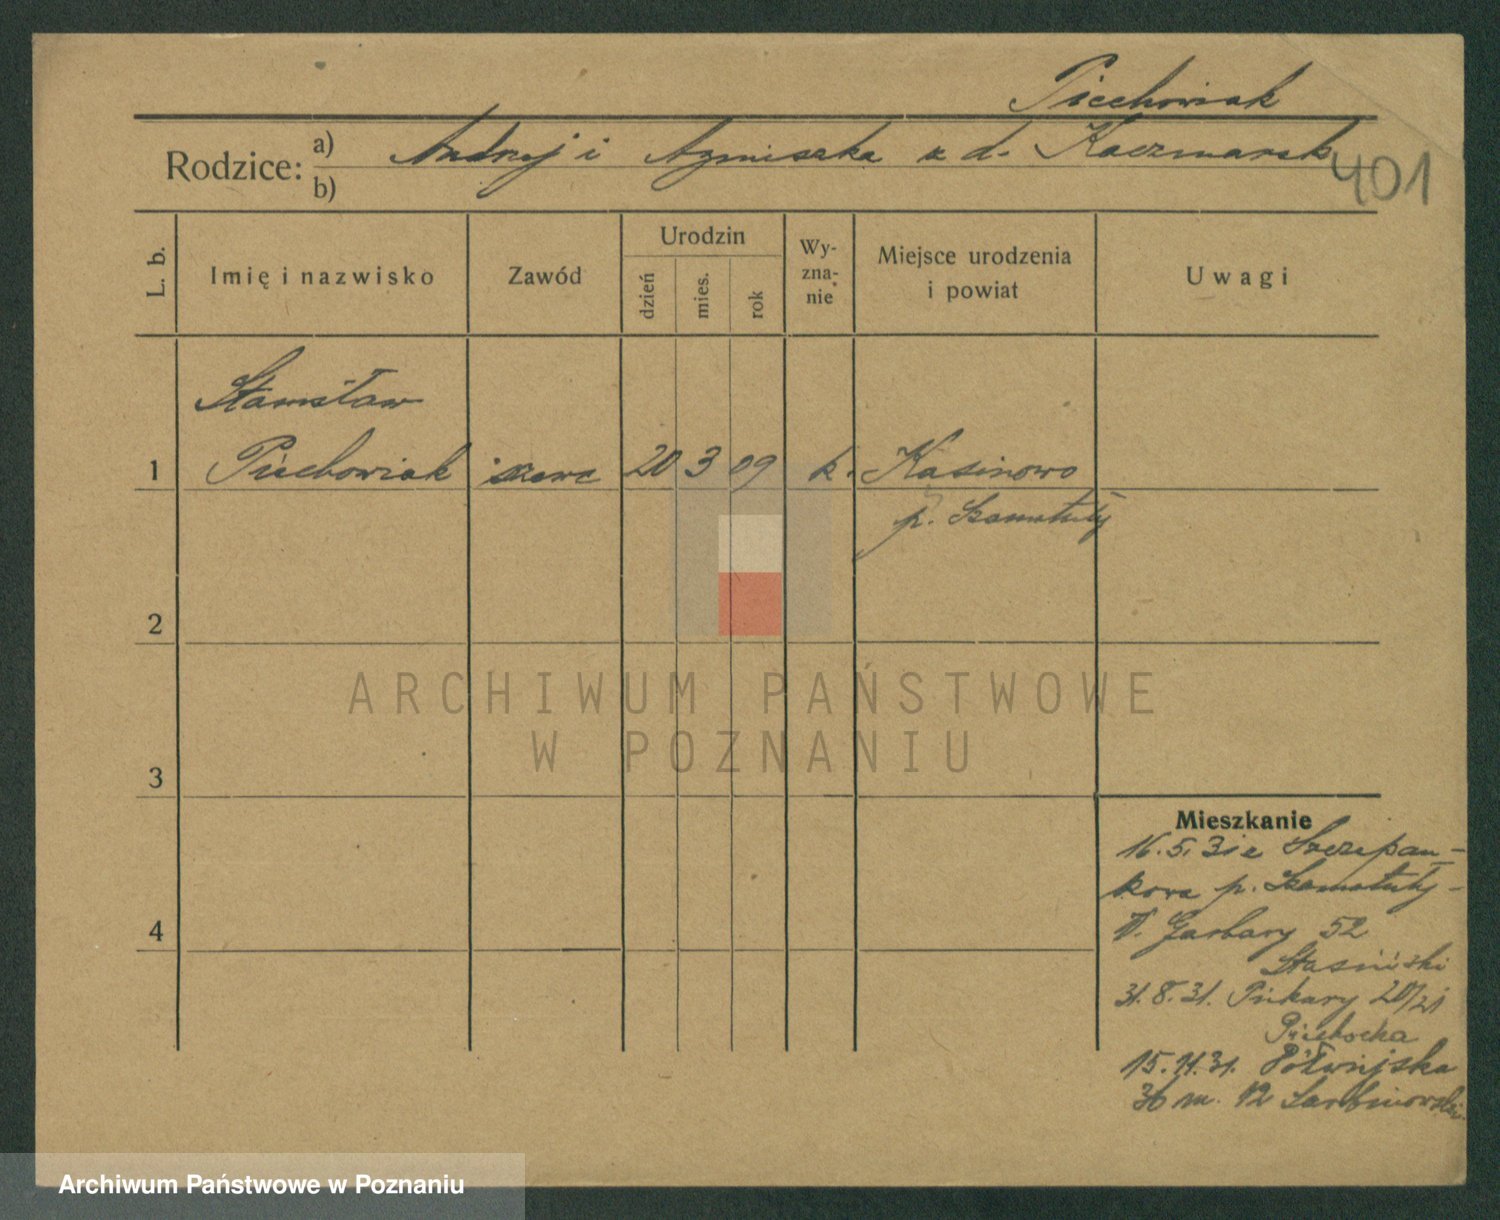 Piechowiak
Rodzice: a) Andrzej i Agnieszka z d. Kaczmarek
b)
401
L. b.
Imię i nazwisko
Zawód
Urodzin
dzień
mies.
rok
Wy-
zna-
nie
Miejsce urodzenia
i powiat
Uwagi
Stanisław
1 Piechowiak szewc 20 3 09 k. Kasinowo
p. Szamotuły
2
ARCHIWUM PAŃSTWOWE
W POZNANIU
3
Mieszkanie
16.5.31 z Szczepan-
kowa p. Szamotuły-
Garbary 52
Stasiński
4
31.8.31. Piekary 20/21
Piechocka
15.11.31. Półwiejska
36 m. 12 Sarbinowski
Archiwum Państwowe w Poznaniu